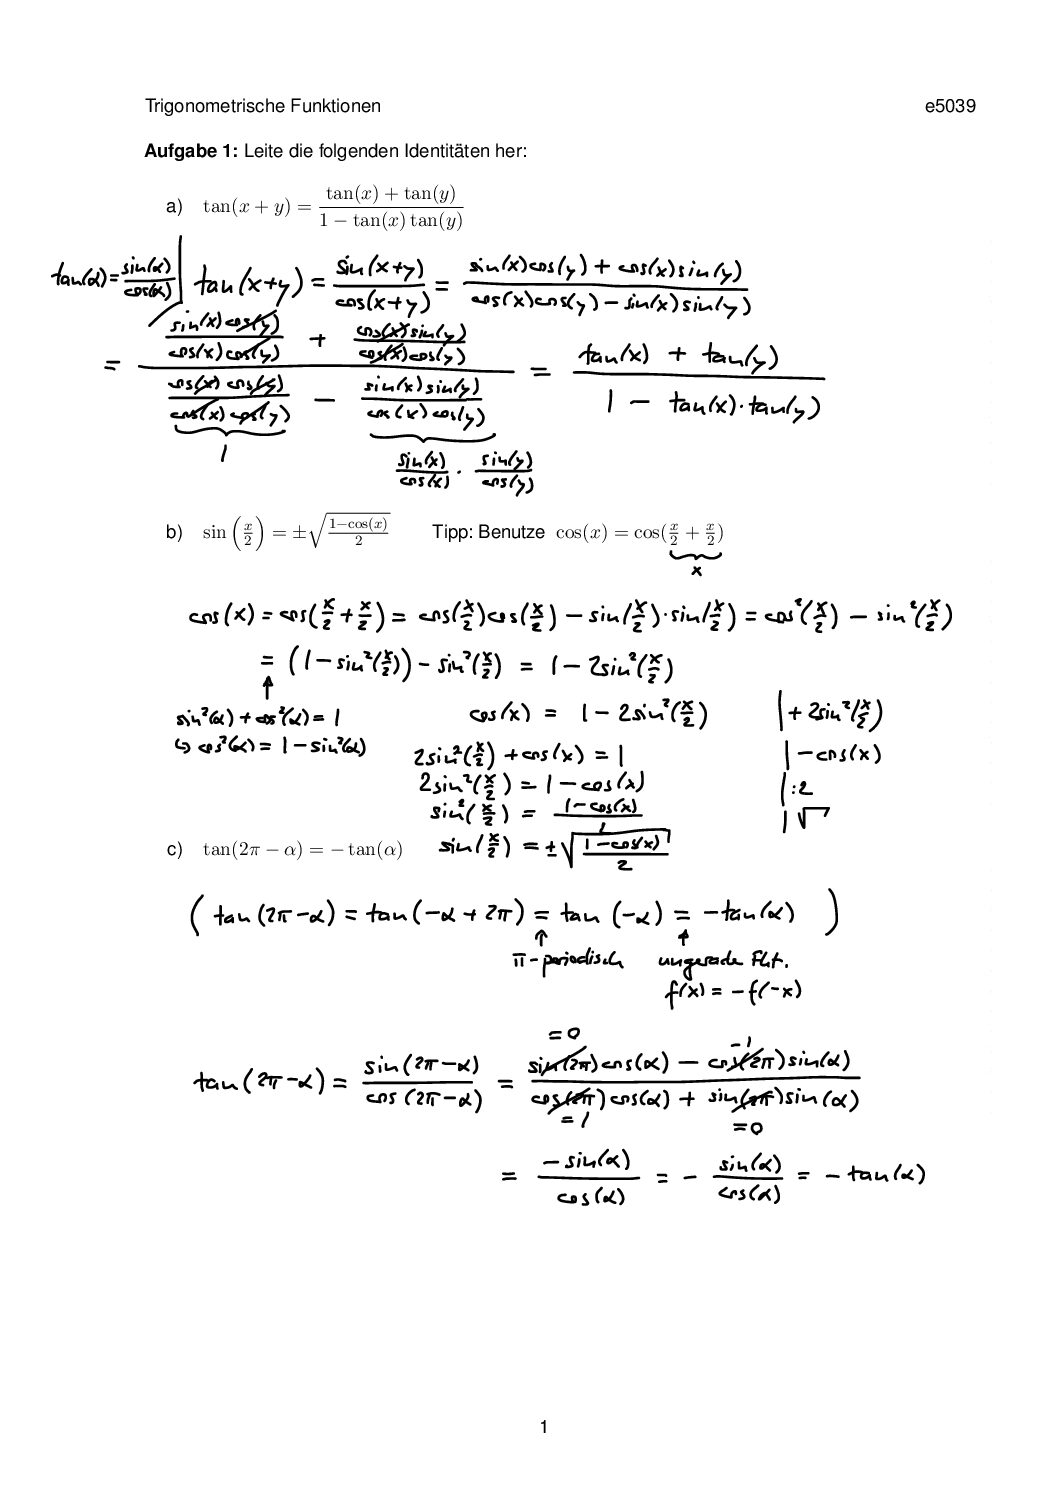 Trigonometrische Funktionen e5039
Aufgabe 1: Leite die folgenden Identitäten her:
a) tan(x + y) = (tan(x) + tan(y)) / (1 − tan(x) tan(y))
tan(α) = sin(α)/cos(α) | tan(x+y) = sin(x+y)/cos(x+y) = (sin(x)cos(y) + cos(x)sin(y)) / (cos(x)cos(y) − sin(x)sin(y))
= (sin(x)cos(y)/cos(x)cos(y) + cos(x)sin(y)/cos(x)cos(y)) / (cos(x)cos(y)/cos(x)cos(y) − sin(x)sin(y)/cos(x)cos(y)) = (tan(x) + tan(y)) / (1 − tan(x)·tan(y))
1 sin(x)/cos(x) · sin(y)/cos(y)
b) sin(x/2) = ±√((1−cos(x))/2) Tipp: Benutze cos(x) = cos(x/2 + x/2)
x
cos(x) = cos(x/2 + x/2) = cos(x/2)cos(x/2) − sin(x/2)·sin(x/2) = cos²(x/2) − sin²(x/2)
= (1 − sin²(x/2)) − sin²(x/2) = 1 − 2sin²(x/2)
↑
sin²(α) + cos²(α) = 1
↪ cos²(α) = 1 − sin²(α)
cos(x) = 1 − 2sin²(x/2) | + 2sin²(x/2)
2sin²(x/2) + cos(x) = 1 | − cos(x)
2sin²(x/2) = 1 − cos(x) | :2
sin²(x/2) = (1 − cos(x))/2 | √
sin(x/2) = ±√((1 − cos(x))/2)
c) tan(2π − α) = − tan(α)
( tan(2π−α) = tan(−α + 2π) = tan(−α) = −tan(α) )
↑ ↑
π-periodisch ungerade Fkt.
f(x) = −f(−x)
=0 −1
tan(2π−α) = sin(2π−α)/cos(2π−α) = (sin(2π)cos(α) − cos(2π)sin(α)) / (cos(2π)cos(α) + sin(2π)sin(α))
=1 =0
= −sin(α)/cos(α) = − sin(α)/cos(α) = − tan(α)
1